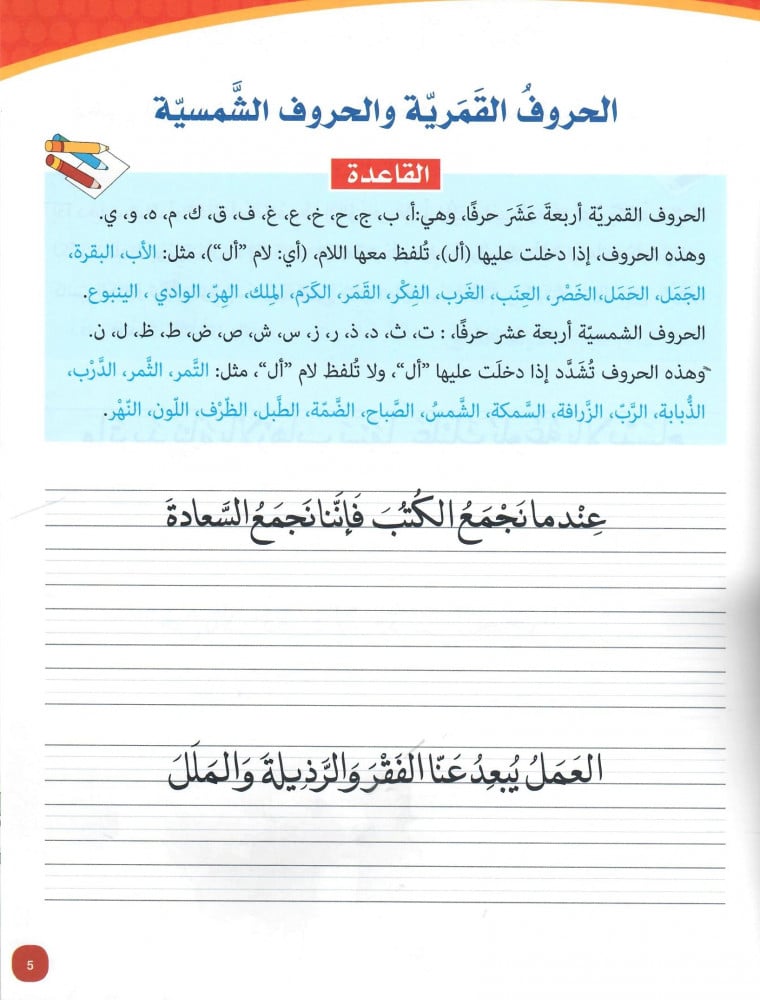 الحروفُ القَمَريّة والحروف الشَّمسيّة
القاعدة
الحروف القمريّة أربعةَ عَشَرَ حرفًا، وهي:أ، ب، ج، ح، خ، ع، غ، ف، ق، ك، م، ه، و، ي.
وهذه الحروف، إذا دخلت عليها (أل)، تُلفظ معها اللام، (أي: لام "أل")، مثل: الأب، البقرة،
الجَمَل، الحَمَل،الخَصْر، العِنَب، الغَرب، الفِكْر، القَمَر، الكَرَم، المِلك، الهِرّ، الوادي ، الينبوع.
الحروف الشمسيّة أربعة عشر حرفًا، : ت، ث، د، ذ، ر، ز، س، ش، ص، ض، ط، ظ، ل، ن.
وهذه الحروف تُشَدَّد إذا دخلَت عليها "أل"، ولا تُلفظ لام "أل"، مثل: التَّمر، الثَّمر، الدَّرْب،
الذُّبابة، الرَّبّ، الزَّرافة، السَّمكة، الشَّمسُ، الصَّباح، الضَّمّة، الطَّبل، الظّرْف، اللّون، النّهْر.
عِنْدما نَجْمَعُ الكُتُبَ فَإنَّنا نَجمَعُ السَّعادةَ
العَمَلُ يُبعِدُ عَنّا الفَقْرَ وَالرَّذِيلةَ وَالمَلَلَ
5